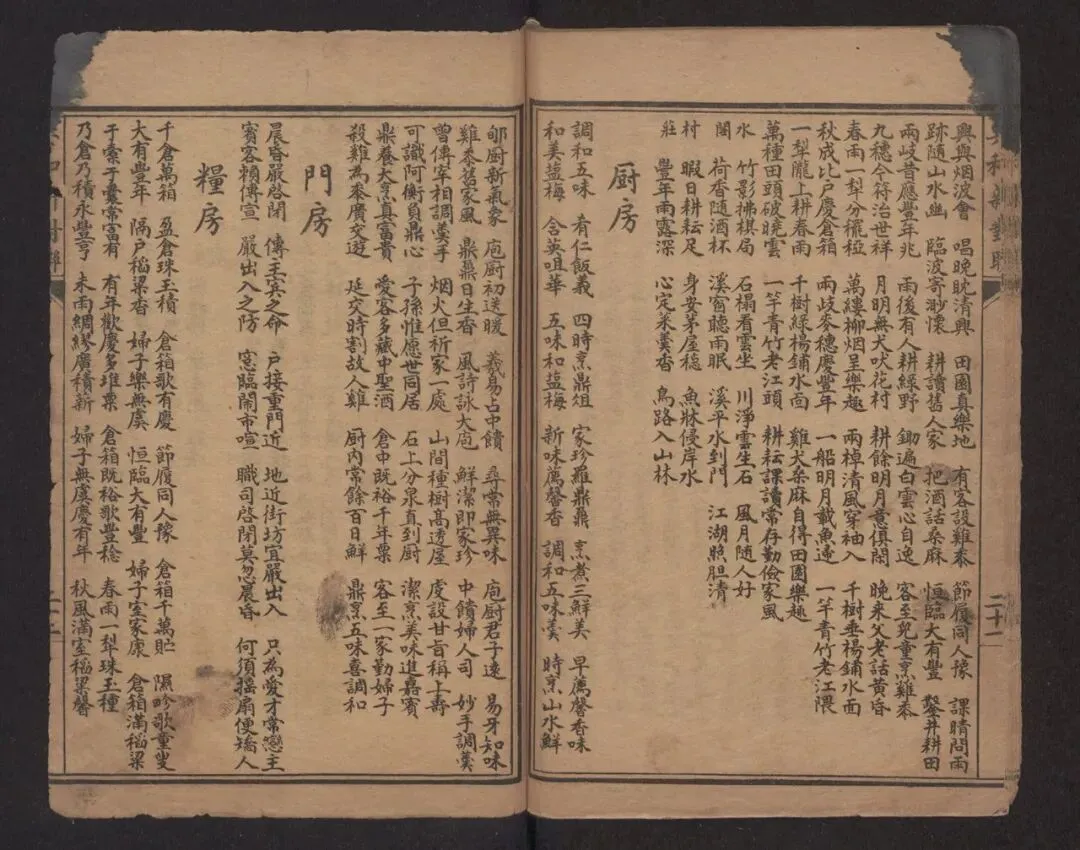 興與烟波會 唱晚晚清興 田園真樂地 有客設雞黍 節履同人豫 課晴問雨
跡隨山水幽 臨波寄眇懷 耕讀舊人家 把酒話桑麻 恒臨大有豐 鑿井耕田
兩岐音應豐年兆 雨後有人耕綠野 鋤遍白雲心自逸 客至兒童烹雞黍
九穗令符治世祥 月明無犬吠花村 耕餘明月意俱閑 晚來父老話黃昏
春雨一犁分穲稏 萬縷柳烟呈樂趣 兩棹清風穿袖入 千樹垂楊鋪水面
秋成比戶慶倉箱 兩岐麥穗慶豐年 一船明月載魚還 一竿青竹老江隈
一犁隴上耕春雨 千樹綠楊鋪水面 雞犬桑麻自得田園樂趣
萬種田頭破曉雲 一竿青竹老江頭 耕耘課讀常存勤儉家風
水 竹影拂棋局 石榻看雲坐 川淨雲生石 風月隨人好
閣 荷香隨酒杯 溪窗聽雨眠 溪平水到門 江湖照胆清
村 暇日耕耘足 身安茅屋穩 魚牀侵岸水
莊 豐年雨露深 心定菜羹香 鳥路入山林
厨房
調和五味 有仁飯義 四時烹鼎俎 家珍羅鼎鼎 烹煮三鮮美 早薦馨香味
和美塩梅 含英咀華 五味和塩梅 新味薦馨香 調和五味羹 時烹山水鮮
郇厨新氣象 庖厨初送暖 羲易占中饋 尋常無異味 庖厨君子遠 易牙知味
雞黍舊家風 鼎鼐日生香 風詩詠大庖 鮮潔即家珍 中饋婦人司 妙手調羹
曾傳宰相調羹手 烟火但祈家一處 山間種樹高透屋 虔設甘旨稱上壽
可識阿衡負鼎心 子孫惟愿世同居 石上分泉直到厨 潔烹美味進嘉賓
鼎養大烹真富貴 愛客多藏中聖酒 倉中既裕千年粟 客至一家勤婦子
殺雞為黍廣交遊 延交時割故人雞 厨内常餘百日鮮 鼎烹五味喜調和
門房
晨昏嚴啓閉 傳主賓之命 戶接重門近 地近街坊宜嚴出入 只為愛才常戀主
賓客賴傳宣 嚴出入之防 窓臨鬧市喧 職司啓閉莫忽晨昏 何須搖扇便矯人
糧房
千倉萬箱 盈倉珠玉積 倉箱歌有慶 節履同人豫 倉箱千萬貯 隰畛歌童叟
大有豐年 隔户稻梁香 婦子樂無虞 恒臨大有豐 婦子室家康 倉箱滿稻梁
于橐于囊常富有 有年歡慶多堆粟 倉箱既裕歌豐稔 春雨一犁珠玉種
乃倉乃積永豐亨 未雨綢繆廣積新 婦子無虞慶有年 秋風滿室稻梁馨
二十一